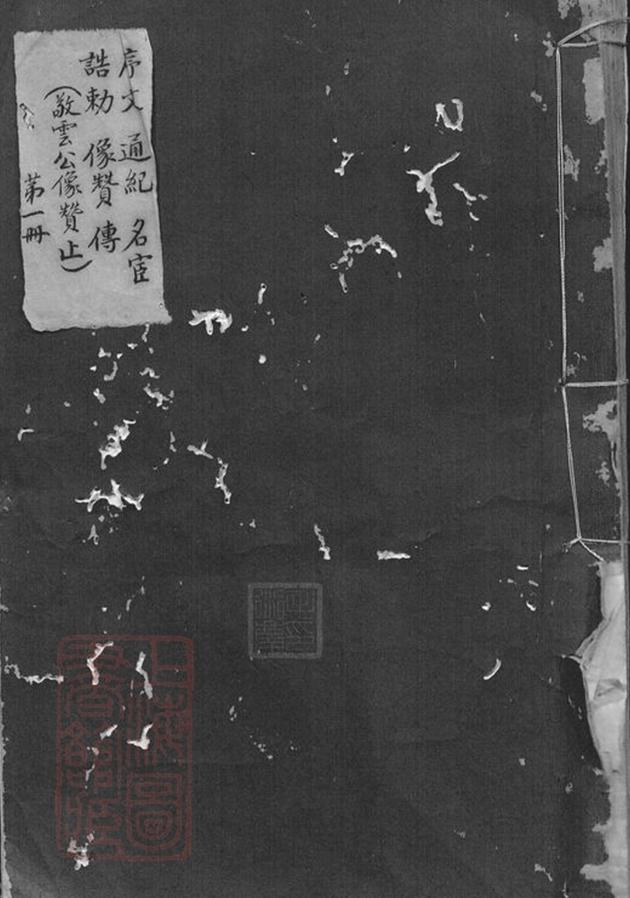 序文 通紀 名宦
誥勅 像贊 傳
(敬雲公像贊止)
第一冊
上海圖書館藏